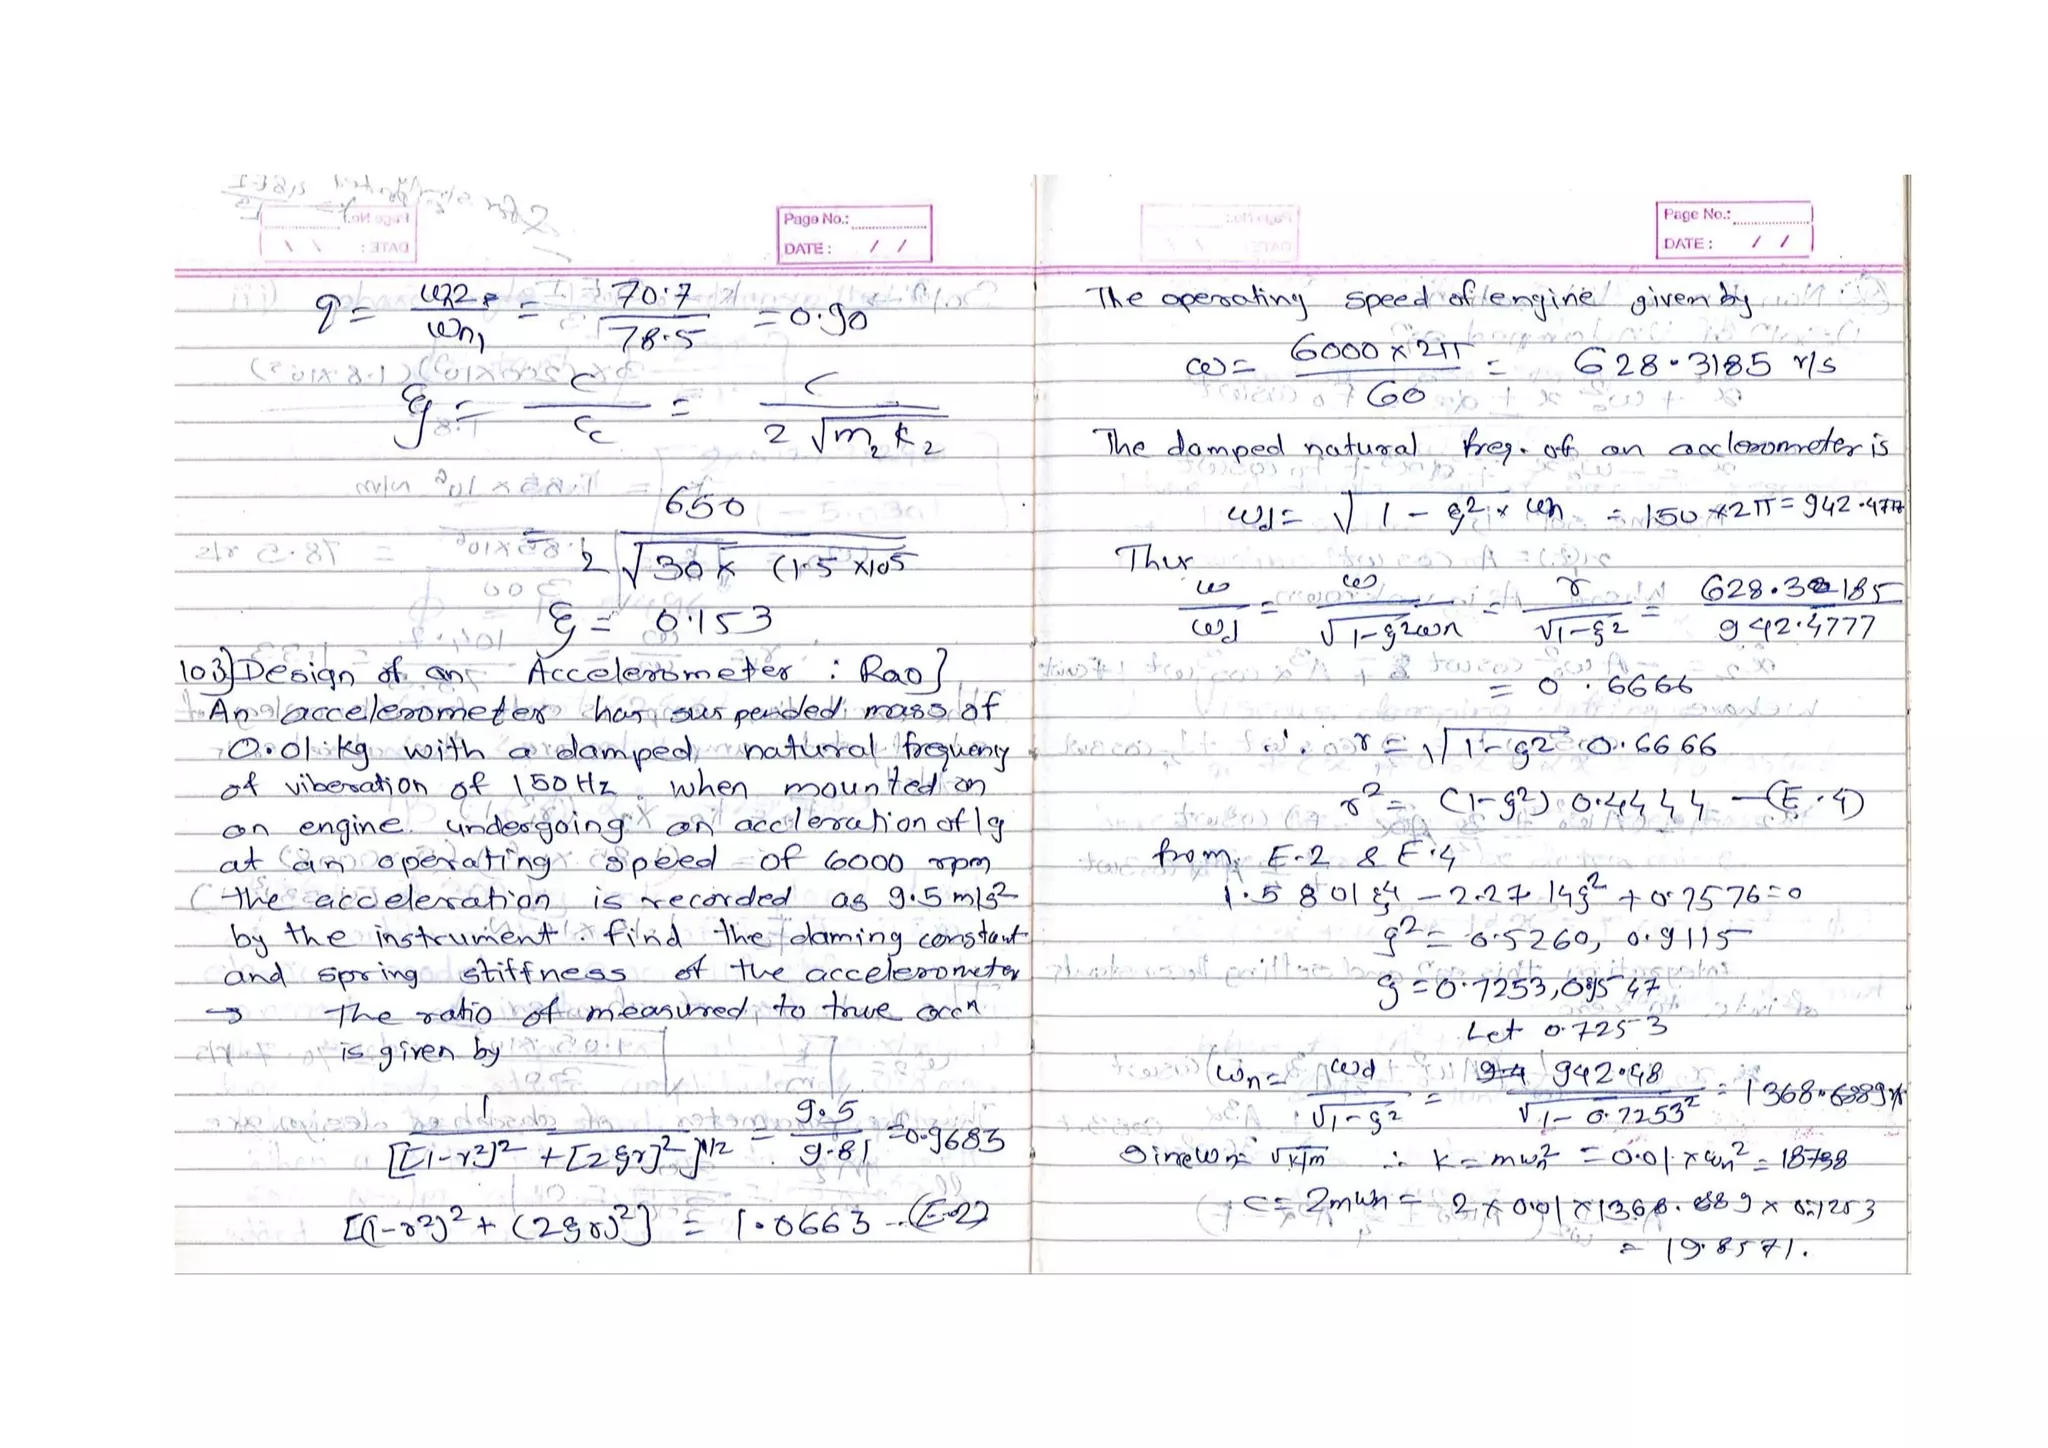 Page No.:
DATE: / /
q = ωn2 / ωn1 = 70.7 / 78.5 = 0.90
ξ = c / cc = c / 2√m2 k2
= 650 / 2√30 × (1.5 × 10^5
ξ = 0.153
103] Design of an Accelerometer : Rao]
An accelerometer has suspended mass of
0.01 kg with a damped natural frequeny
of viberation of 150 Hz. when mounted on
an engine undergoing an accleration of 1g
at an operating speed of 6000 rpm
the acceleration is recorded as 9.5 m/s²
by the instrument. find the daming constant
and spring stiffness of the accelerometer
→ The ratio of measured to true accn
is given by
1 / [[1-r²]² + [2ξr]²]^1/2 = 9.5 / 9.81 = 0.9683
[(1-r²)² + (2ξr)²] = 1.0663 -- (E-2)
Page No.:
DATE: / /
The operating speed of engine given by
ω = 6000 × 2π / 60 = 628.3185 r/s
The damped natural freq. of an acclerometer is
ωd = √1-ξ² × ωn = 150 × 2π = 942.4777
Thus
ω / ωd = ω / √1-ξ² ωn = r / √1-ξ² = 628.3185 / 942.4777
= 0.6666
∴ r = √1-ξ² 0.6666
r² = (1-ξ²) 0.4444 — (E.4)
from E-2 & E.4
1.5801 ξ⁴ - 2.2714 ξ² + 0.7576 = 0
ξ² = 0.5260, 0.9115
ξ = 0.7253, 0.9547
Let 0.7253
ωn = ωd / √1-ξ² = 942.48 / √1-0.7253² = 1368.6889
Since ωn = √k/m ∴ k = mωn² = 0.01 × ωn² = 18738
c = 2mωn = 2 × 0.01 × 1368.689 × 0.7253
= 19.8571.